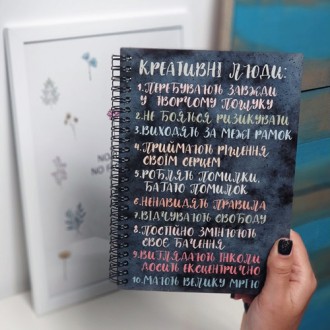 КРЕАТИВНІ ЛЮДИ:
1. ПЕРЕБУВАЮТЬ ЗАВЖДИ
У ТВОРЧОМУ ПОШУКУ
2. НЕ БОЯТЬСЯ РИЗИКУВАТИ
3. ВИХОДЯТЬ ЗА МЕЖІ РАМОК
4. ПРИЙМАЮТЬ РІШЕННЯ
СВОЇМ СЕРЦЕМ
5. РОБЛЯТЬ ПОМИЛКИ,
БАГАТО ПОМИЛОК
6. НЕНАВИДЯТЬ ПРАВИЛА
7. ВІДЧУВАЮТЬ СВОБОДУ
8. ПОСТІЙНО ЗМІНЮЮТЬ
СВОЄ БАЧЕННЯ
9. ВИГЛЯДАЮТЬ ІНКОЛИ
ДОСИТЬ ЕКСЦЕНТРИЧНО
10. МАЮТЬ ВЕЛИКУ МРІЮ
NO